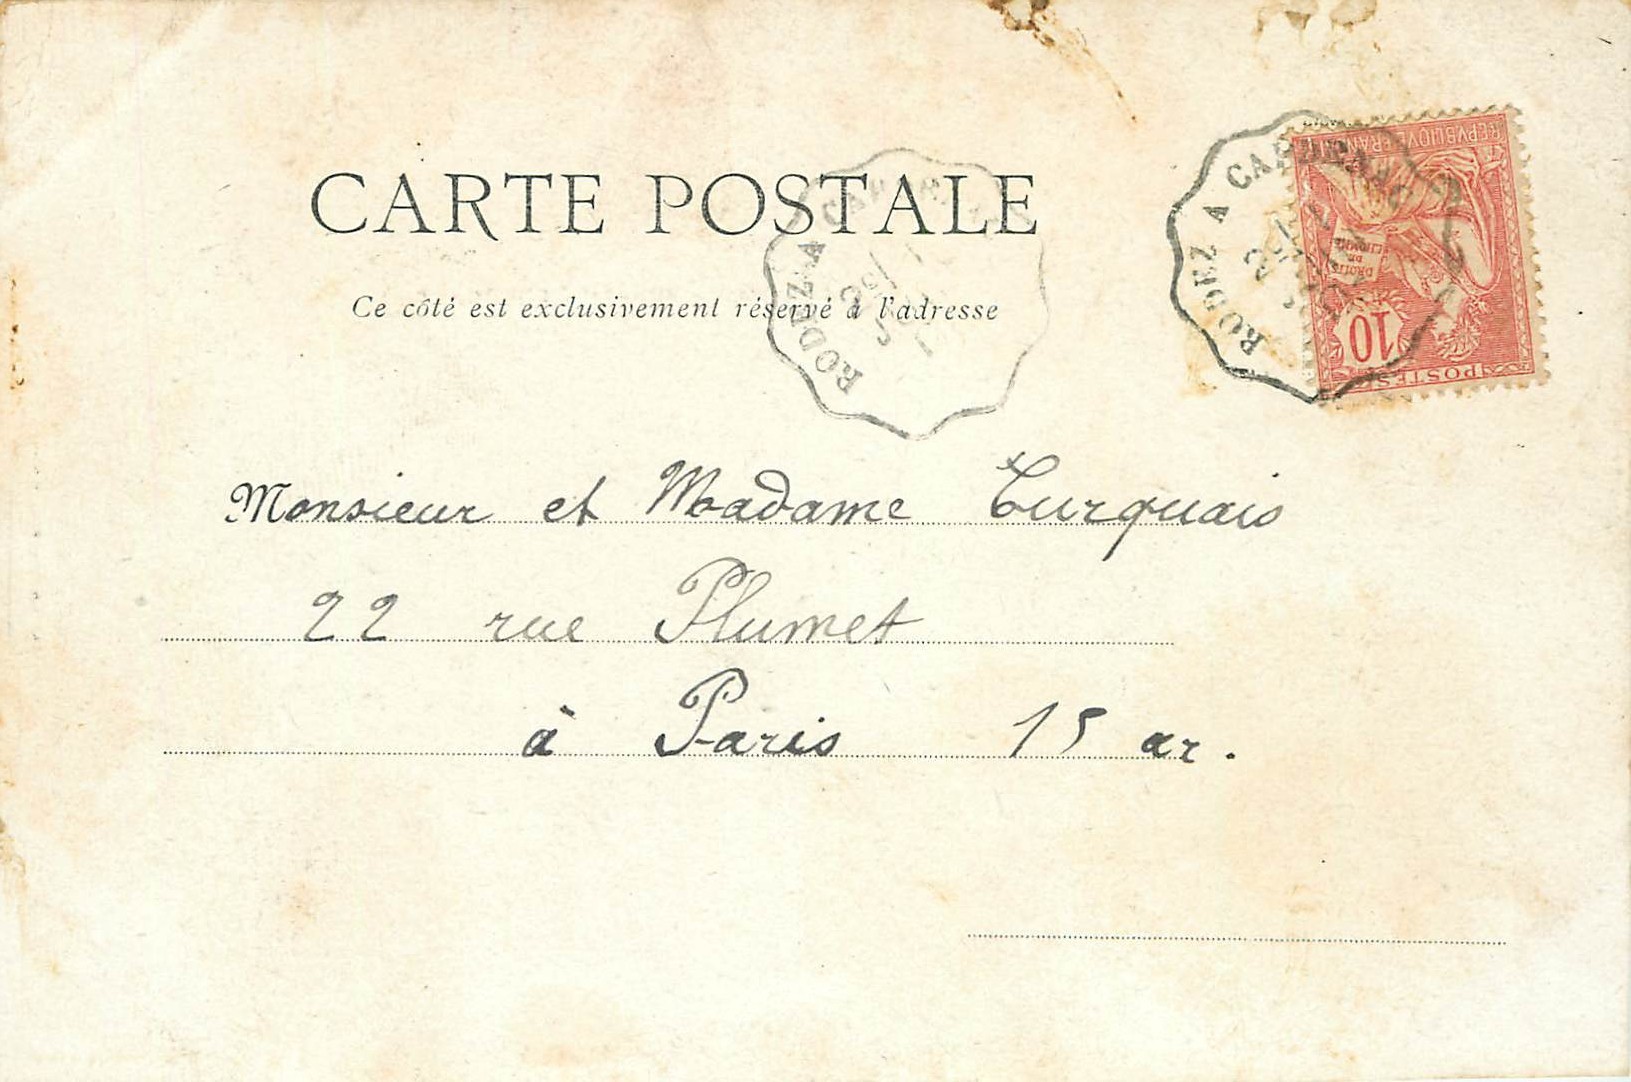 CARTE POSTALE
Ce côté est exclusivement réservé à l'adresse
RODEZ A
RODEZ A CAPDENAC
REPVBLIQVE FRAN
DROITS
DE
L'HOMME
10
POSTES
Monsieur et Madame Turquais
22 rue Plumet
à Paris 15 ar.